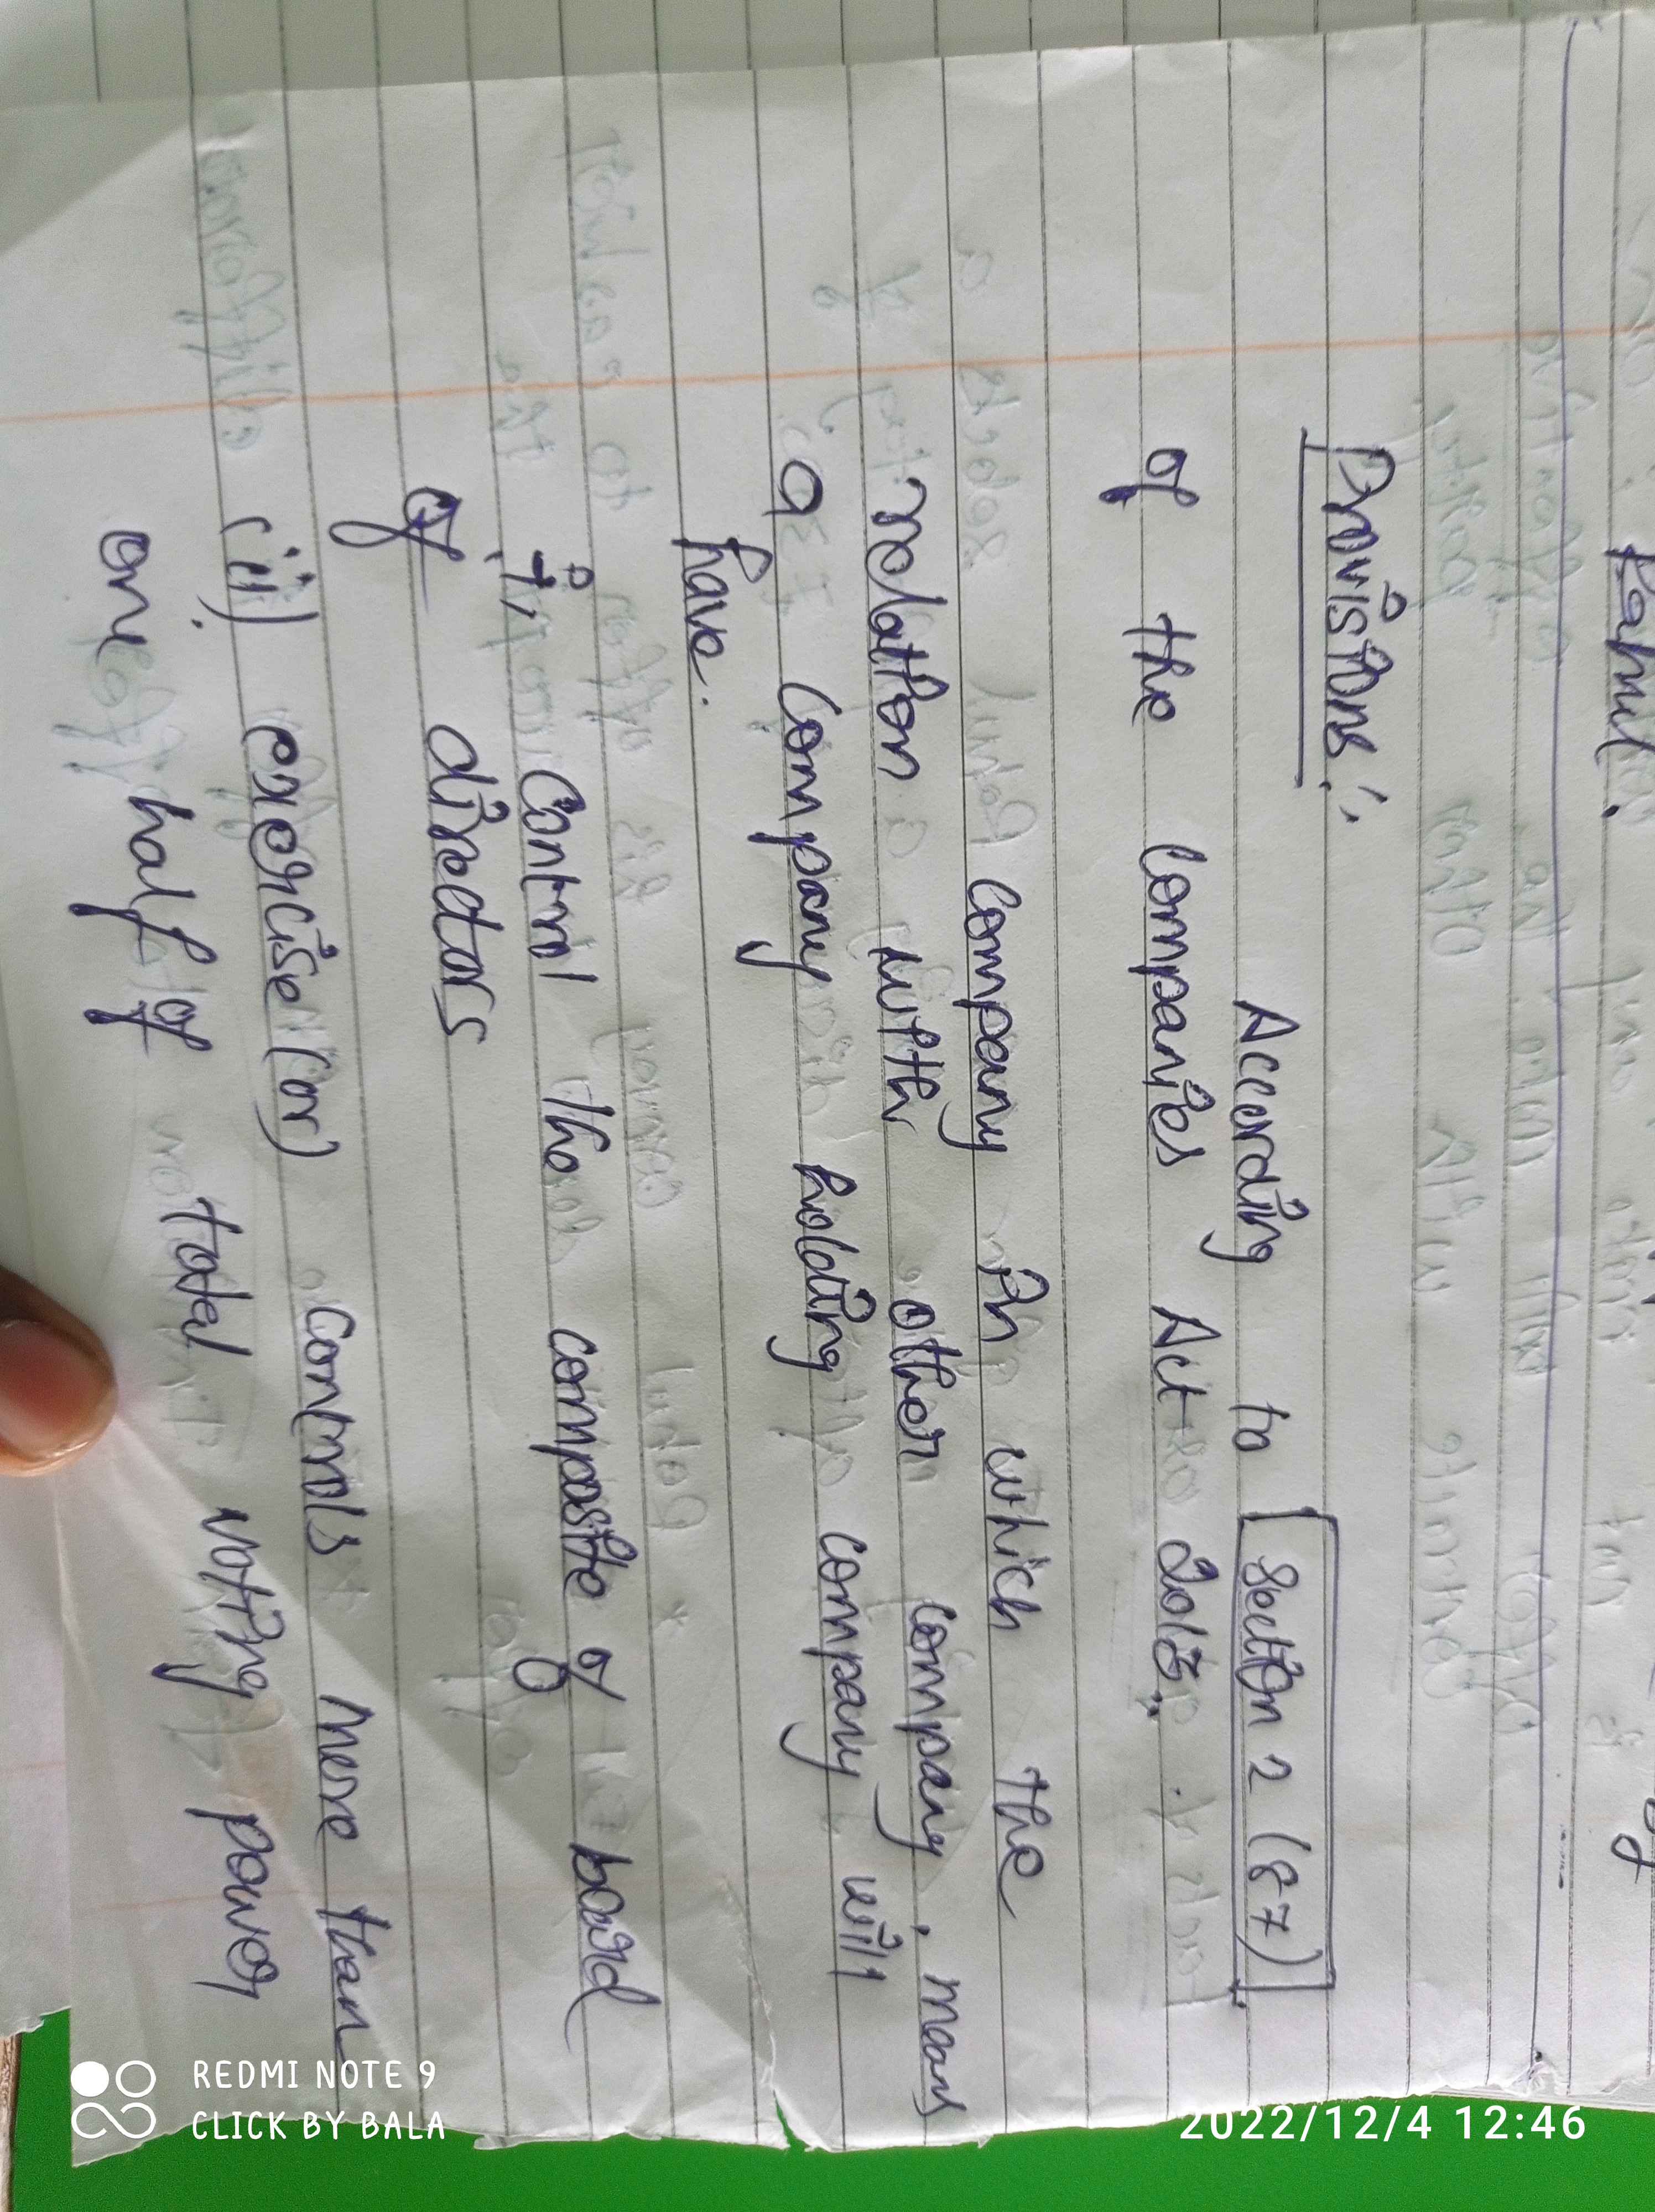 Rahul.
Provisions:
According to Section 2 (87)
of the Companies Act 2013.
Company in which the
relation with other company, means
a Company holding company will
have.
i, Control the composite of board
of directors
(ii) exercise (or) controls more than
one half of total voting power
REDMI NOTE 9
CLICK BY BALA
2022/12/4 12:46